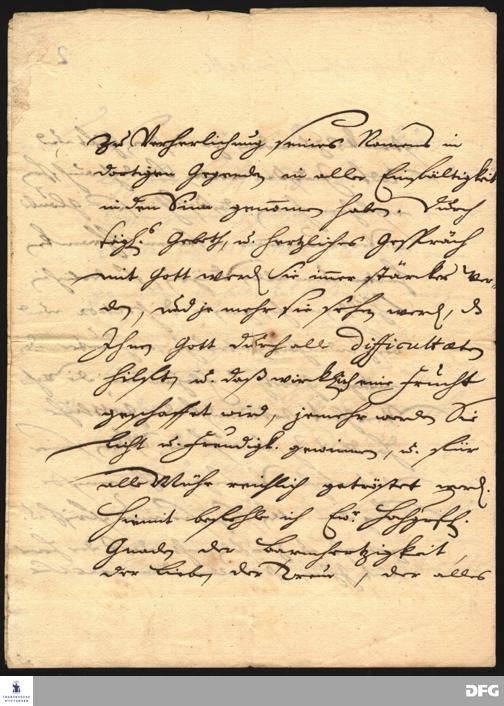 2
zu Verherlichung seines Namens in
dortigen Gegenden in aller Einfältigkeit
in den Sinn genommen haben. Durch
tägl. Gebeth, u. hertzliches Gespräch
mit Gott werden Sie immer stärcker wer-
den, und je mehr sie sehen werden, dß
Ihnen Gott durch alle difficultäten
hilfft, u. daß wircklich eine Frucht
geschaffet wird, jemehr werden Sie
licht u. Freudigk. gewinnen, u. für
alle Mühe reichlich getröstet werd.
Hiemit befehle ich Ew. Hochgräfl.
Gnaden der Barmhertzigkeit,
der Liebe, der Treue, der alles
FRANCKESCHE STIFTUNGEN
DFG